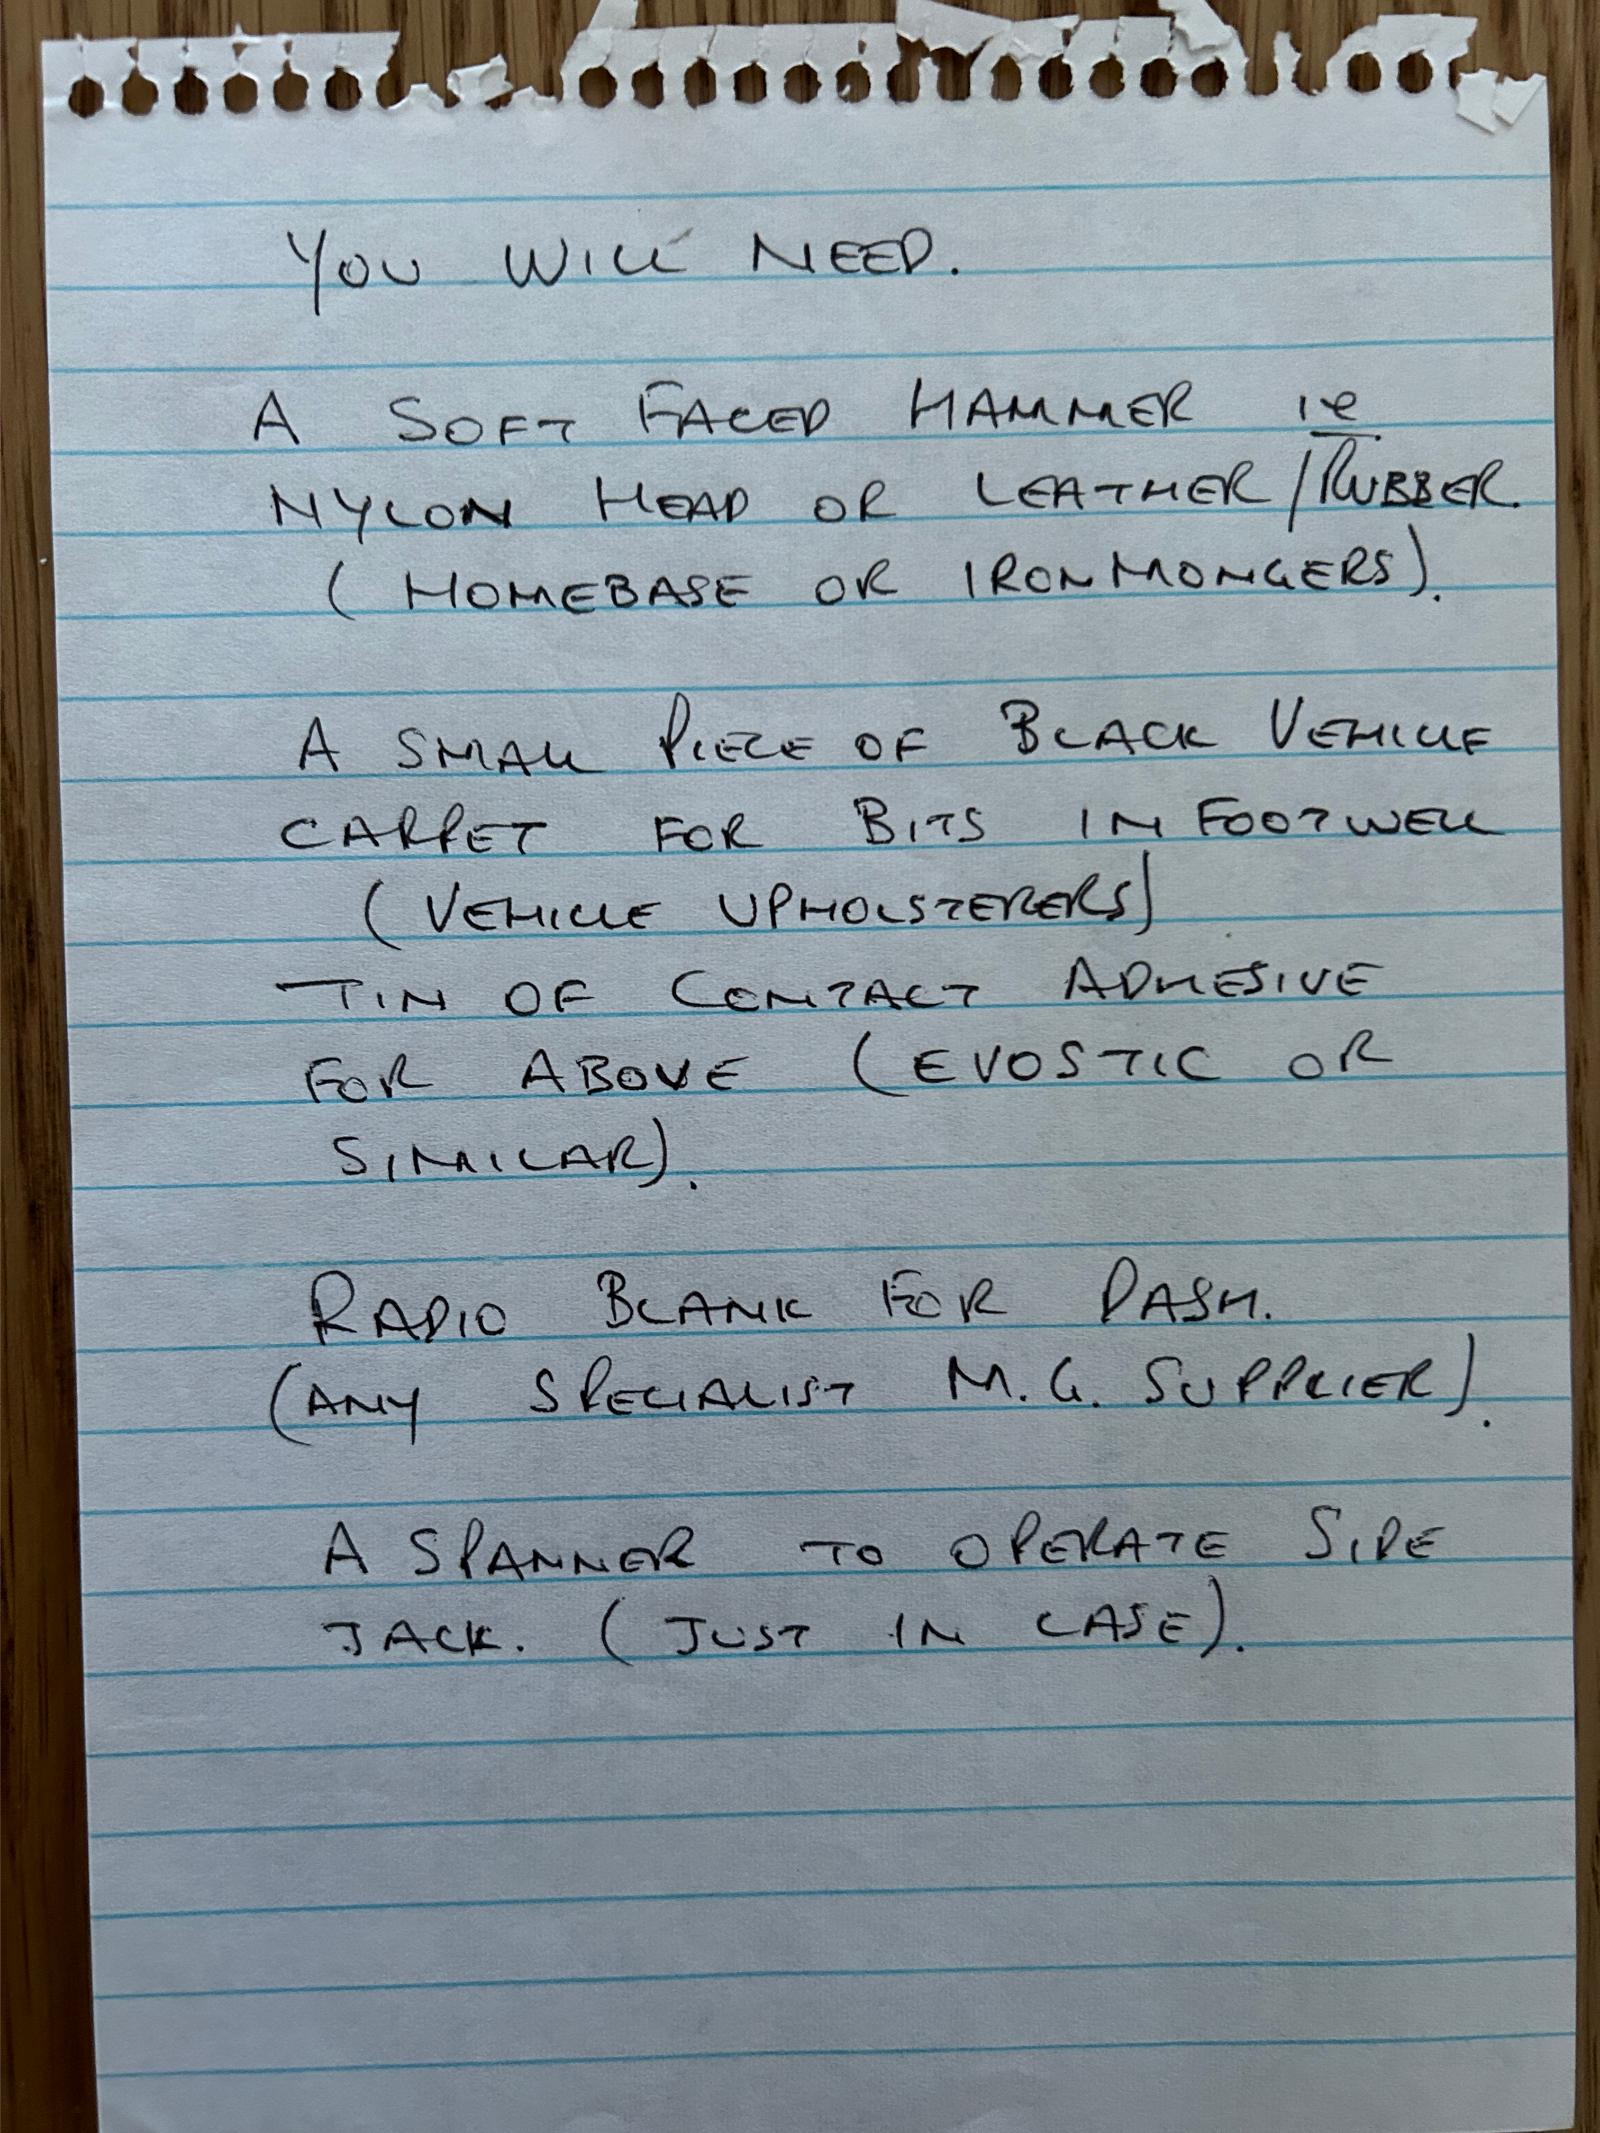 YOU WILL NEED.
A SOFT FACED HAMMER ie
NYLON HEAD OR LEATHER/RUBBER.
(HOMEBASE OR IRONMONGERS).
A SMALL PIECE OF BLACK VEHICLE
CARPET FOR BITS IN FOOTWELL
(VEHICLE UPHOLSTERERS)
TIN OF CONTACT ADHESIVE
FOR ABOVE (EVOSTIC OR
SIMILAR).
RADIO BLANK FOR DASH.
(ANY SPECIALIST M.G. SUPPLIER).
A SPANNER TO OPERATE SIDE
JACK. (JUST IN CASE).